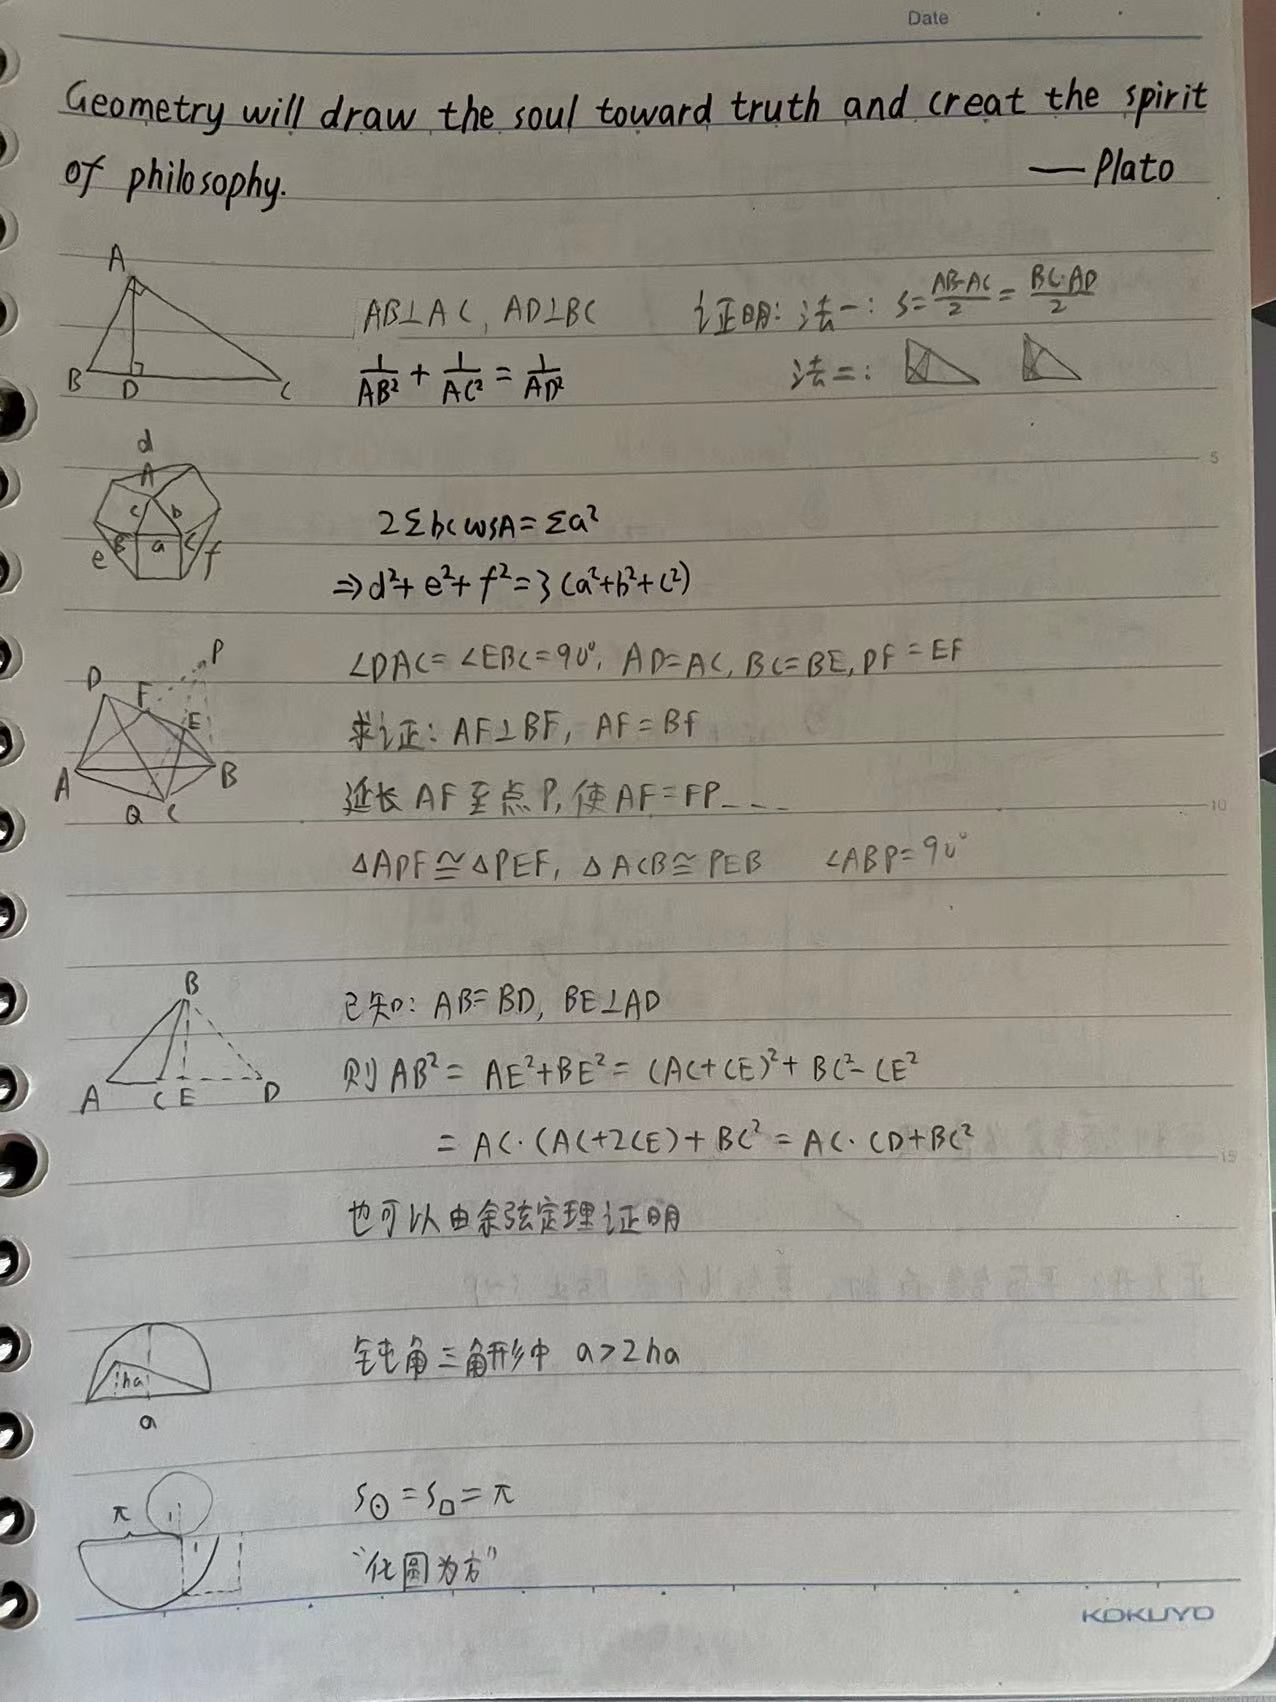 Date
Geometry will draw the soul toward truth and creat the spirit
of philosophy.
— Plato
A
B D C
AB⊥AC, AD⊥BC
证明: 法一: S=AB·AC/2=BC·AD/2
1/AB²+1/AC²=1/AD²
法二:
d
A
c b
e B a C f
5
2Σbc cosA=Σa²
⇒d²+e²+f²=3(a²+b²+c²)
P
D F
E
A B
Q C
∠DAC=∠EBC=90°, AD=AC, BC=BE, DF=EF
求证: AF⊥BF, AF=BF
延长AF至点P,使AF=FP---
10
△ADF≅△PEF, △ACB≅PEB ∠ABP=90°
B
A C E D
已知: AB=BD, BE⊥AD
则AB²=AE²+BE²=(AC+CE)²+BC²-CE²
=AC·(AC+2CE)+BC²=AC·CD+BC²
15
也可以由余弦定理证明
ha
a
钝角三角形中 a>2ha
π 1
1
S⊙=S□=π
“化圆为方”
KOKUYO